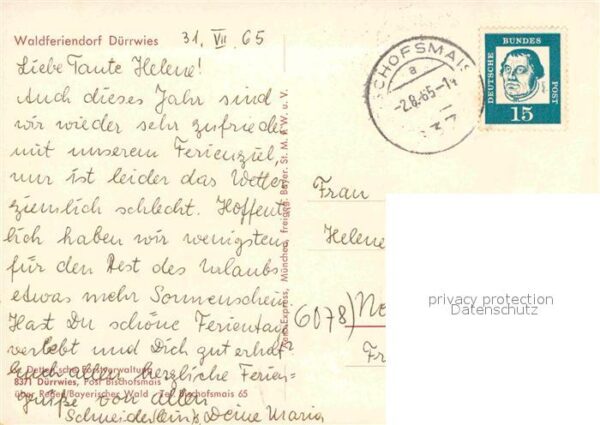 Waldferiendorf Dürrwies 31. VII 65
Liebe Tante Helene!
Auch dieses Jahr sind
wir wieder sehr zufrieden
mit unserem Ferienziel,
nur ist leider das Wetter
ziemlich schlecht. Hoffent-
lich haben wir wenigstens
für den Rest des Urlaubs
etwas mehr Sonnenschein.
Hast Du schöne Ferientage
verlebt und Dich gut erholt
Euch allen herzliche Ferien=
grüße von allen
Schneidersleins Deine Maria
8371 Dürrwies, Post Bischofsmais
über Regen/Bayerischer Wald - Tel. Bischofsmais 65
BISCHOFSMAIS
a
-2.8.65-1
DEUTSCHE BUNDES POST
15
Frau
Helene
6078) Ne
Fr
privacy protection
Datenschutz